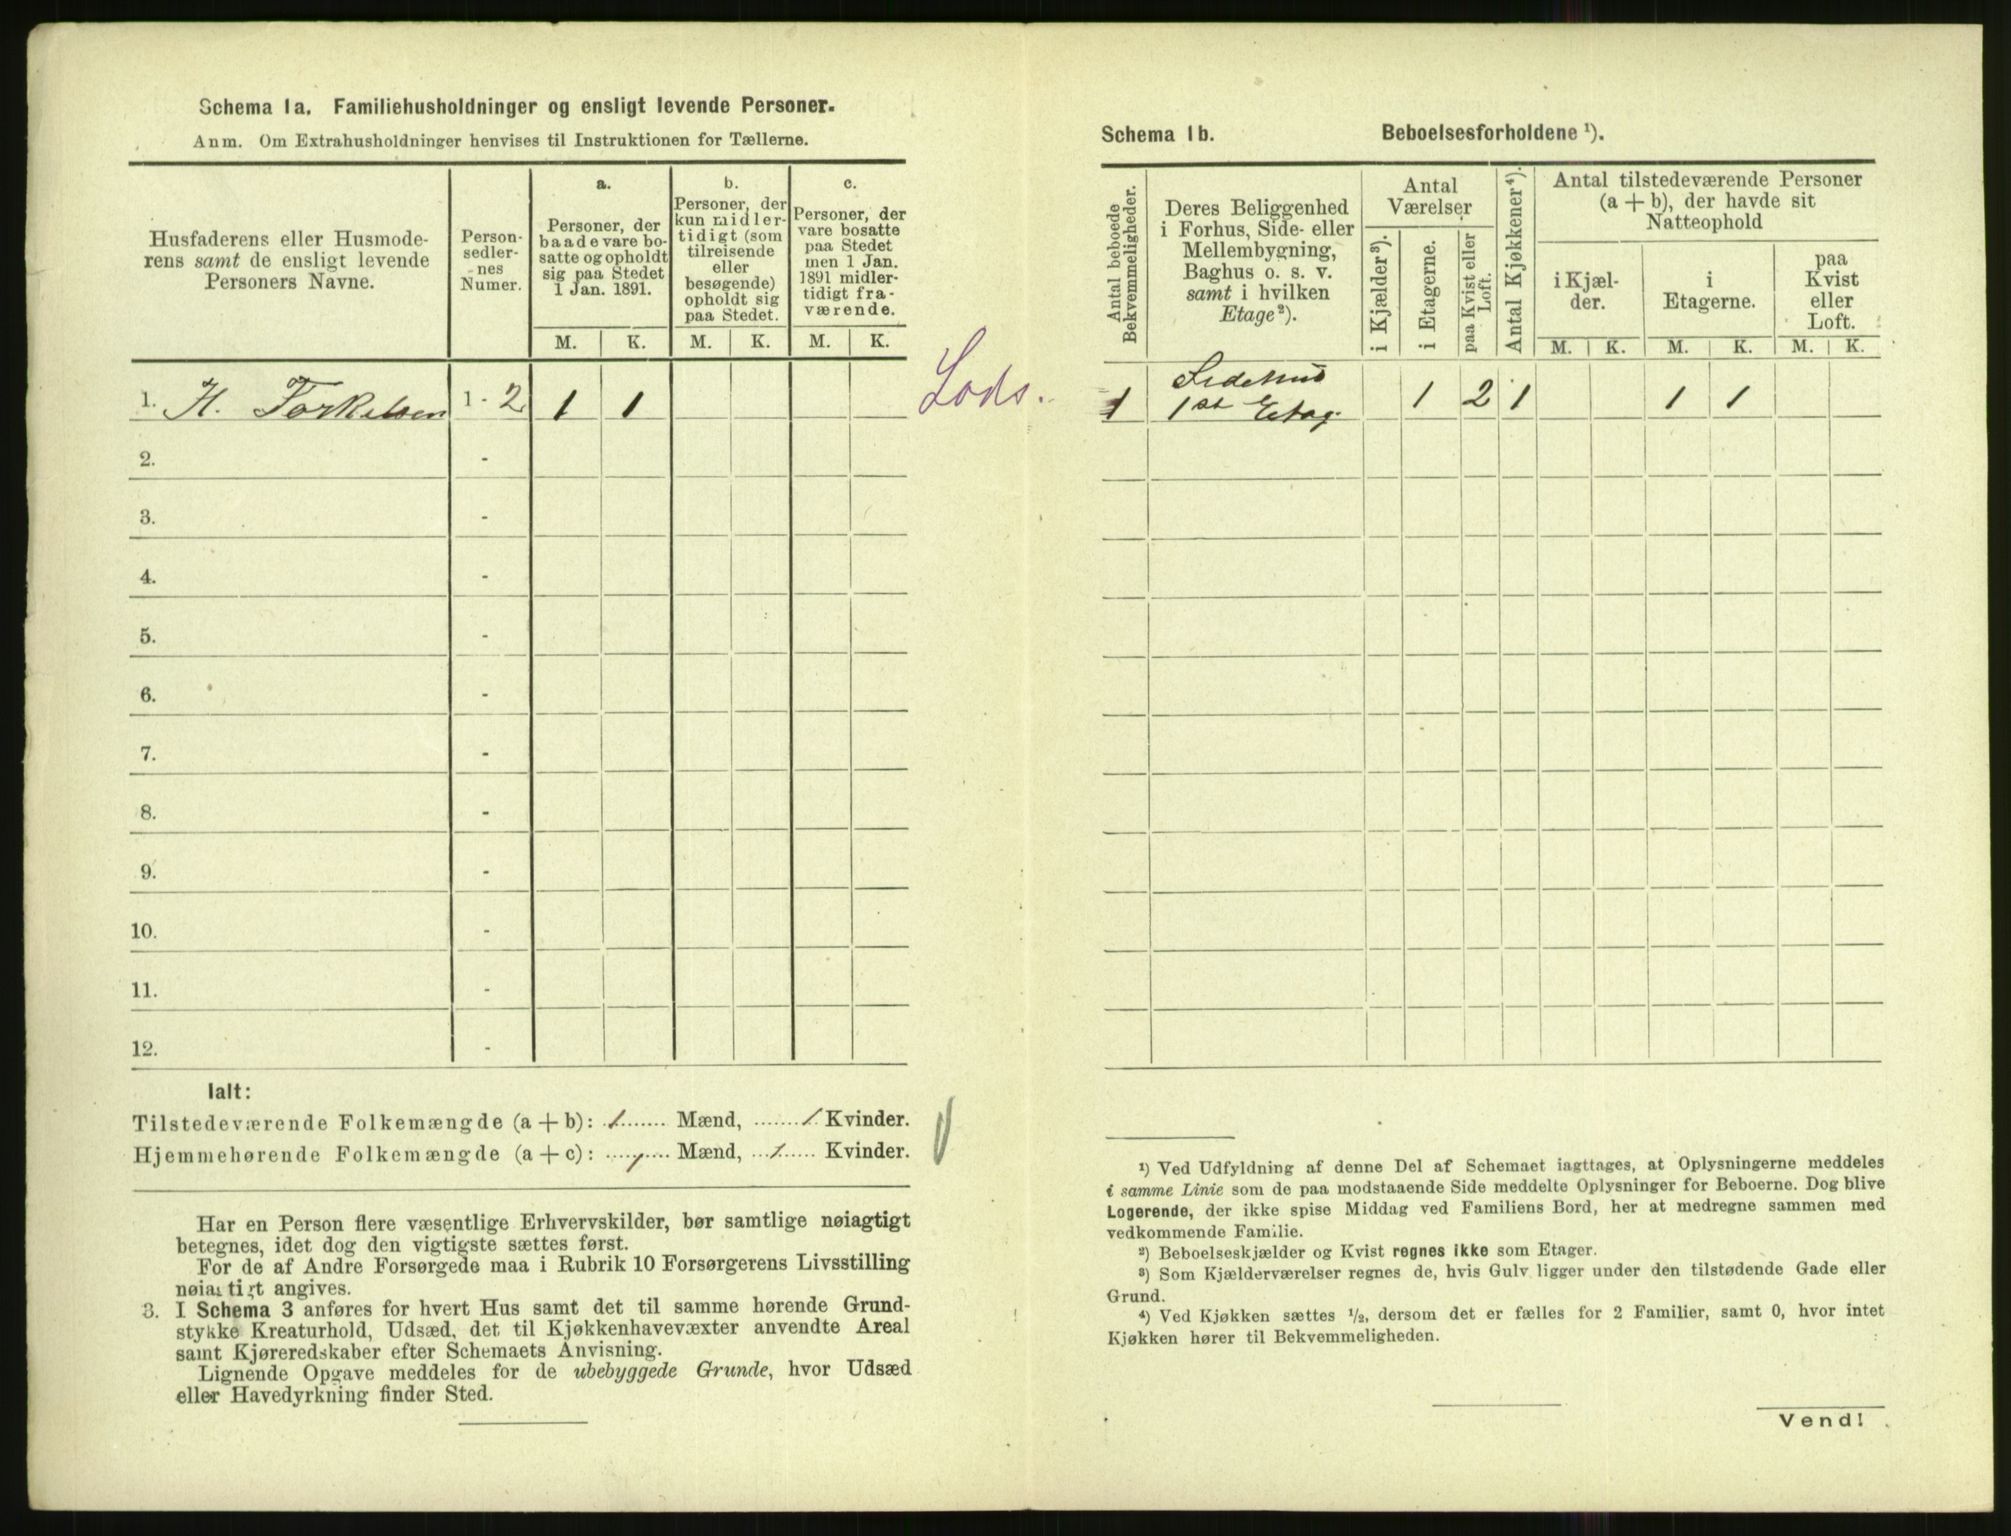 Schema 1a. Familiehusholdninger og ensligt levende Personer.
Anm. Om Extrahusholdninger henvises til Instruktionen for Tællerne.
Husfaderens eller Husmode-
rens samt de ensligt levende
Personers Navne.
Person-
sedler-
nes
Numer.
a.
Personer, der
baade vare bo-
satte og opholdt
sig paa Stedet
1 Jan. 1891.
b.
Personer, der
kun midler-
tidigt (som
tilreisende
eller
besøgende)
opholdt sig
paa Stedet.
c.
Personer, der
vare bosatte
paa Stedet
men 1 Jan.
1891 midler-
tidigt fra-
værende.
M. K. M. K. M. K.
1. H. Torkelsen 1 - 2 1 1
Lods.
2. -
3. -
4. -
5. -
6. -
7. -
8. -
9. -
10. -
11. -
12. -
Ialt:
Tilstedeværende Folkemængde (a + b): 1 Mænd, 1 Kvinder.
Hjemmehørende Folkemængde (a + c): 1 Mænd, 1 Kvinder.
Har en Person flere væsentlige Erhvervskilder, bør samtlige nøiagtigt
betegnes, idet dog den vigtigste sættes først.
For de af Andre Forsørgede maa i Rubrik 10 Forsørgerens Livsstilling
nøiagtigt angives.
3. I Schema 3 anføres for hvert Hus samt det til samme hørende Grund-
stykke Kreaturhold, Udsæd, det til Kjøkkenhavevæxter anvendte Areal
samt Kjøreredskaber efter Schemaets Anvisning.
Lignende Opgave meddeles for de ubebyggede Grunde, hvor Udsæd
eller Havedyrkning finder Sted.
Schema 1b. Beboelsesforholdene ¹).
Antal beboede
Bekvemmeligheder.
Deres Beliggenhed
i Forhus, Side- eller
Mellembygning,
Baghus o. s. v.
samt i hvilken
Etage ²).
Antal
Værelser
i Kjælder ³).
i Etagerne.
paa Kvist eller
Loft.
Antal Kjøkkener ⁴).
Antal tilstedeværende Personer
(a + b), der havde sit
Natteophold
i Kjæl-
der.
i
Etagerne.
paa
Kvist
eller
Loft.
M. K. M. K. M. K.
1 Sidehus
1st Etag. 1 2 1 1 1
¹) Ved Udfyldning af denne Del af Schemaet iagttages, at Oplysningerne meddeles
i samme Linie som de paa modstaaende Side meddelte Oplysninger for Beboerne. Dog blive
Logerende, der ikke spise Middag ved Familiens Bord, her at medregne sammen med
vedkommende Familie.
²) Beboelseskjælder og Kvist regnes ikke som Etager.
³) Som Kjælderværelser regnes de, hvis Gulv ligger under den tilstødende Gade eller
Grund.
⁴) Ved Kjøkken sættes ½, dersom det er fælles for 2 Familier, samt 0, hvor intet
Kjøkken hører til Bekvemmeligheden.
Vend!